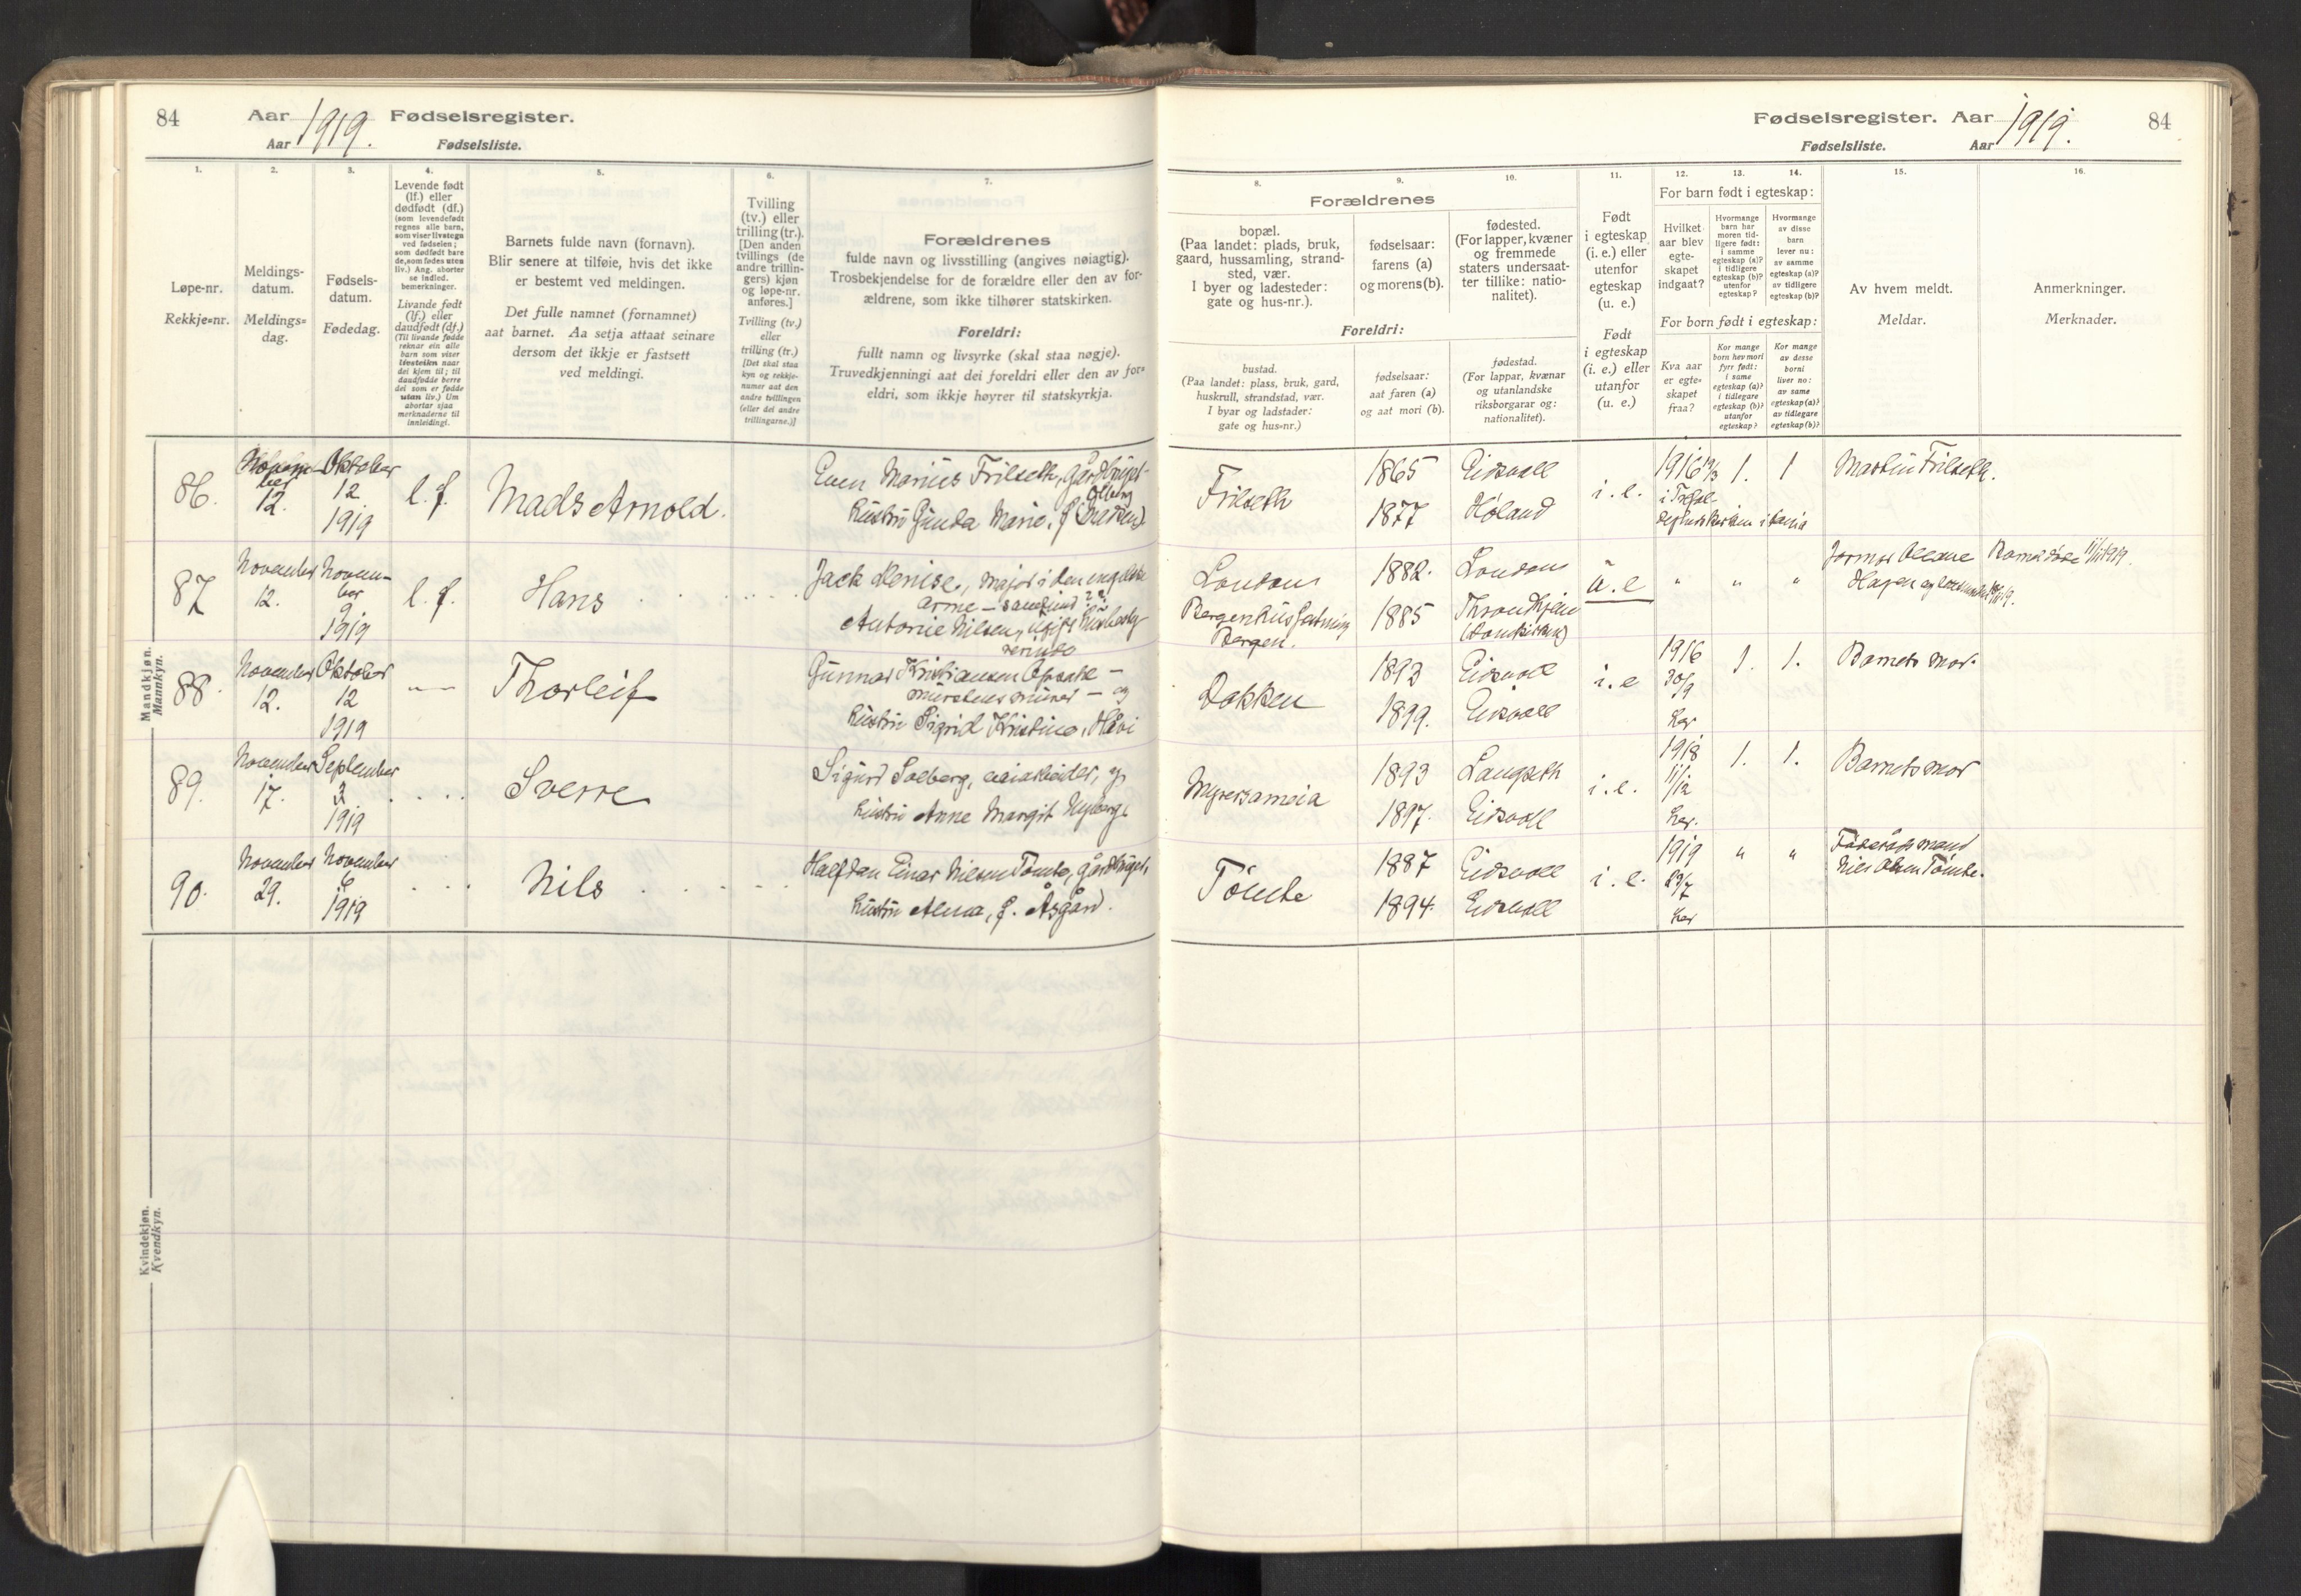 84 Aar 1919. Fødselsregister.
Aar Fødselsliste.
1. 2. 3. 4. 5. 6. 7.
Løpe-nr.
Rekkje=nr.
Meldings-
datum.
Meldings=
dag.
Fødsels-
datum.
Fødedag.
Levende født
(lf.) eller
dødfødt (df.)
(som levendefødt
regnes alle barn,
som viser livstegn
ved fødselen;
som dødfødt bare
de, som fødes uten
liv.) Ang. aborter
se indled.
bemerkninger.
Livande født
(lf.) eller
daudfødt (df.)
(Til livande fødde
reknar ein alle
barn som viser
livsteikn naar
dei kjem til; til
daudfødde berre
dei som er fødde
utan liv.) Um
abortar sjaa
merknaderne til
innleidingi.
Barnets fulde navn (fornavn).
Blir senere at tilføie, hvis det ikke
er bestemt ved meldingen.
Det fulle namnet (fornamnet)
aat barnet. Aa setja attaat seinare
dersom det ikkje er fastsett
ved meldingi.
Tvilling
(tv.) eller
trilling (tr.).
[Den anden
tvillings (de
andre trillin-
gers) kjøn
og løpe-nr.
anføres.]
Tvilling (tv.)
eller
trilling (tr.)
[Det skal staa
kyn og rekkje-
numer aat den
andre tvillingen
(eller dei andre
trillingarne.)]
Forældrenes
fulde navn og livsstilling (angives nøiagtig).
Trosbekjendelse for de forældre eller den av for-
ældrene, som ikke tilhører statskirken.
Foreldri:
fullt namn og livsyrke (skal staa nøgje).
Truvedkjenningi aat dei foreldri eller den av for=
eldri, som ikkje høyrer til statskyrkja.
Mandkjøn.
Mannkyn.
86. Novem-
ber
12. Oktober
12
1919 l. f. Mads Arnold.
Even Marius Frilseth, gårdbruger
hustru Gunda Marie, f.
87 November
12. Novem-
ber
9
1919 l. f. Hans
Jack Denise, major i den engelske
arme
Antonie Nilsen, ugift
88. November
12. Oktober
12
1919 Thorleif
Gunnar Kristiansen
hustru Sigrid Kristine,
89. November
17. September
3
1919 Sverre
Sigurd Solberg,
hustru Anne Margit Nyberget
90. November
29. November
6
1919 Nils
Halfdan Einar Nilsen Tömte, gårdbruger,
hustru Alma, f. Åsgård.
Kvindekjøn.
Kvendkyn.
Fødselsregister. Aar 1919. 84
Fødselsliste. Aar
8. 9. 10. 11. 12. 13. 14. 15. 16.
Forældrenes
bopæl.
(Paa landet: plads, bruk,
gaard, hussamling, strand-
sted, vær.
I byer og ladesteder:
gate og hus-nr.).
fødselsaar:
farens (a)
og morens (b).
fødested.
(For lapper, kvæner
og fremmede
staters undersaat-
ter tillike: natio-
nalitet).
Foreldri:
bustad.
(Paa landet: plass, bruk, gard,
huskrull, strandstad, vær.
I byar og ladstader:
gate og hus=nr.)
fødselsaar:
aat faren (a)
og aat mori (b).
fødestad.
(For lappar, kvænar
og utanlandske
riksborgarar og:
nationalitet).
Født
i egteskap
(i. e.) eller
utenfor
egteskap
(u. e.)
Født
i egteskap
(i. e.) eller
utanfor
(u. e.)
For barn født i egteskap:
Hvilket
aar blev
egte-
skapet
indgaat?
Hvormange
barn har
moren tid-
ligere født:
i samme
egteskap (a)?
i tidligere
egteskap (b)?
utenfor
egteskap?
Hvormange
av disse
barn
lever nu:
av samme
egteskap (a)?
av tidligere
egteskap (b)?
For born født i egteskap:
Kva aar
er egte=
skapet
fraa?
Kor mange
born hev mori
fyrr født:
i same
egteskap (a)?
i tidlegare
egteskap (b)?
utanfor
egteskap?
Kor mange
av desse
borni
liver no:
av same
egteskap (a)?
av tidlegare
egteskap (b)?
Av hvem meldt.
Meldar.
Anmerkninger.
Merknader.
Frilseth 1865 Eidsvoll
1877 Höland i. e. 1916 19/3 1. 1 Martin Frilseth.
London 1882. London
Bergenhus fæstning
Bergen. 1885 Throndhjem
(Domkirken) u. e " " "
Hagen
Dokken 1893 Eidsvoll
1899. Eidsvoll i. e 1916
30/9
her 1. 1. Barnets mor.
1893 Langseth
1897. Eidsvoll i. e. 1918
11/12
her. 1. 1. Barnets mor
Tömte 1887 Eidsvoll
1894. Eidsvoll i. e. 1919
29/7
her " "
Nils Olsen Tömte.